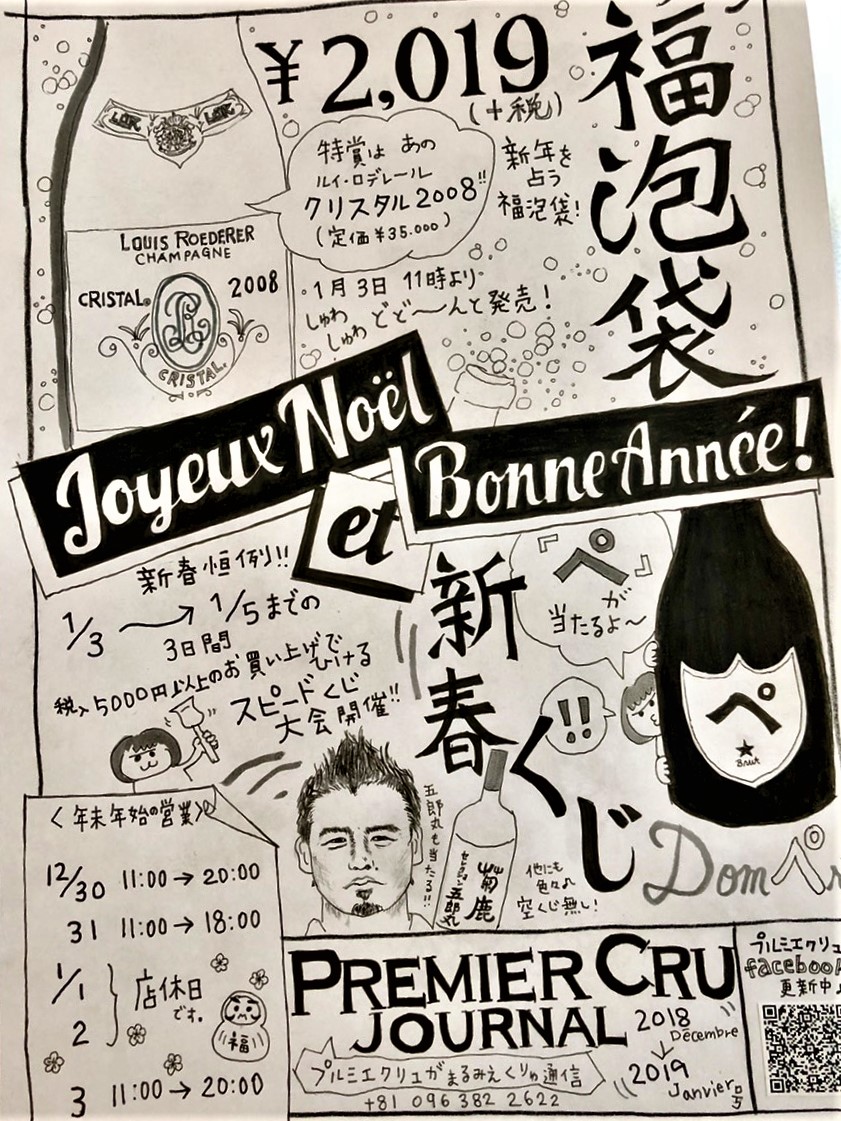 ¥2,019
(+税)
福泡袋
特賞は あの
ルイ・ロデレール
クリスタル2008!!
(定価¥35.000)
新年を
占う
福泡袋!
LOUIS ROEDERER
CHAMPAGNE
CRISTAL
2008
CRISTAL
・1月3日 11時より・
しゅわ
しゅわ
どど〜んと発売!
Joyeux Noël
et
Bonne Année!
新春恒例!!
1/3 → 1/5までの
3日間
税込5000円以上のお買い上げで
ひける
スピードくじ
大会開催!!
新春くじ
『ペ』
が
当たるよ〜
!!
ペ
Brut
Dom ペ
五郎丸も当たる!!
菊鹿
セレクション五郎丸
他にも
色々♪
空くじ無し!
〈年末年始の営業〉
12/30 11:00→20:00
31 11:00→18:00
1/1
2
店休日
です。
福
3 11:00→20:00
PREMIER CRU
JOURNAL
2018
Décembre
↓
2019
Janvier号
プルミエクリュがまるみえくりゅ通信
+81 096 382 2622
プルミエクリュ
facebook
更新中♪